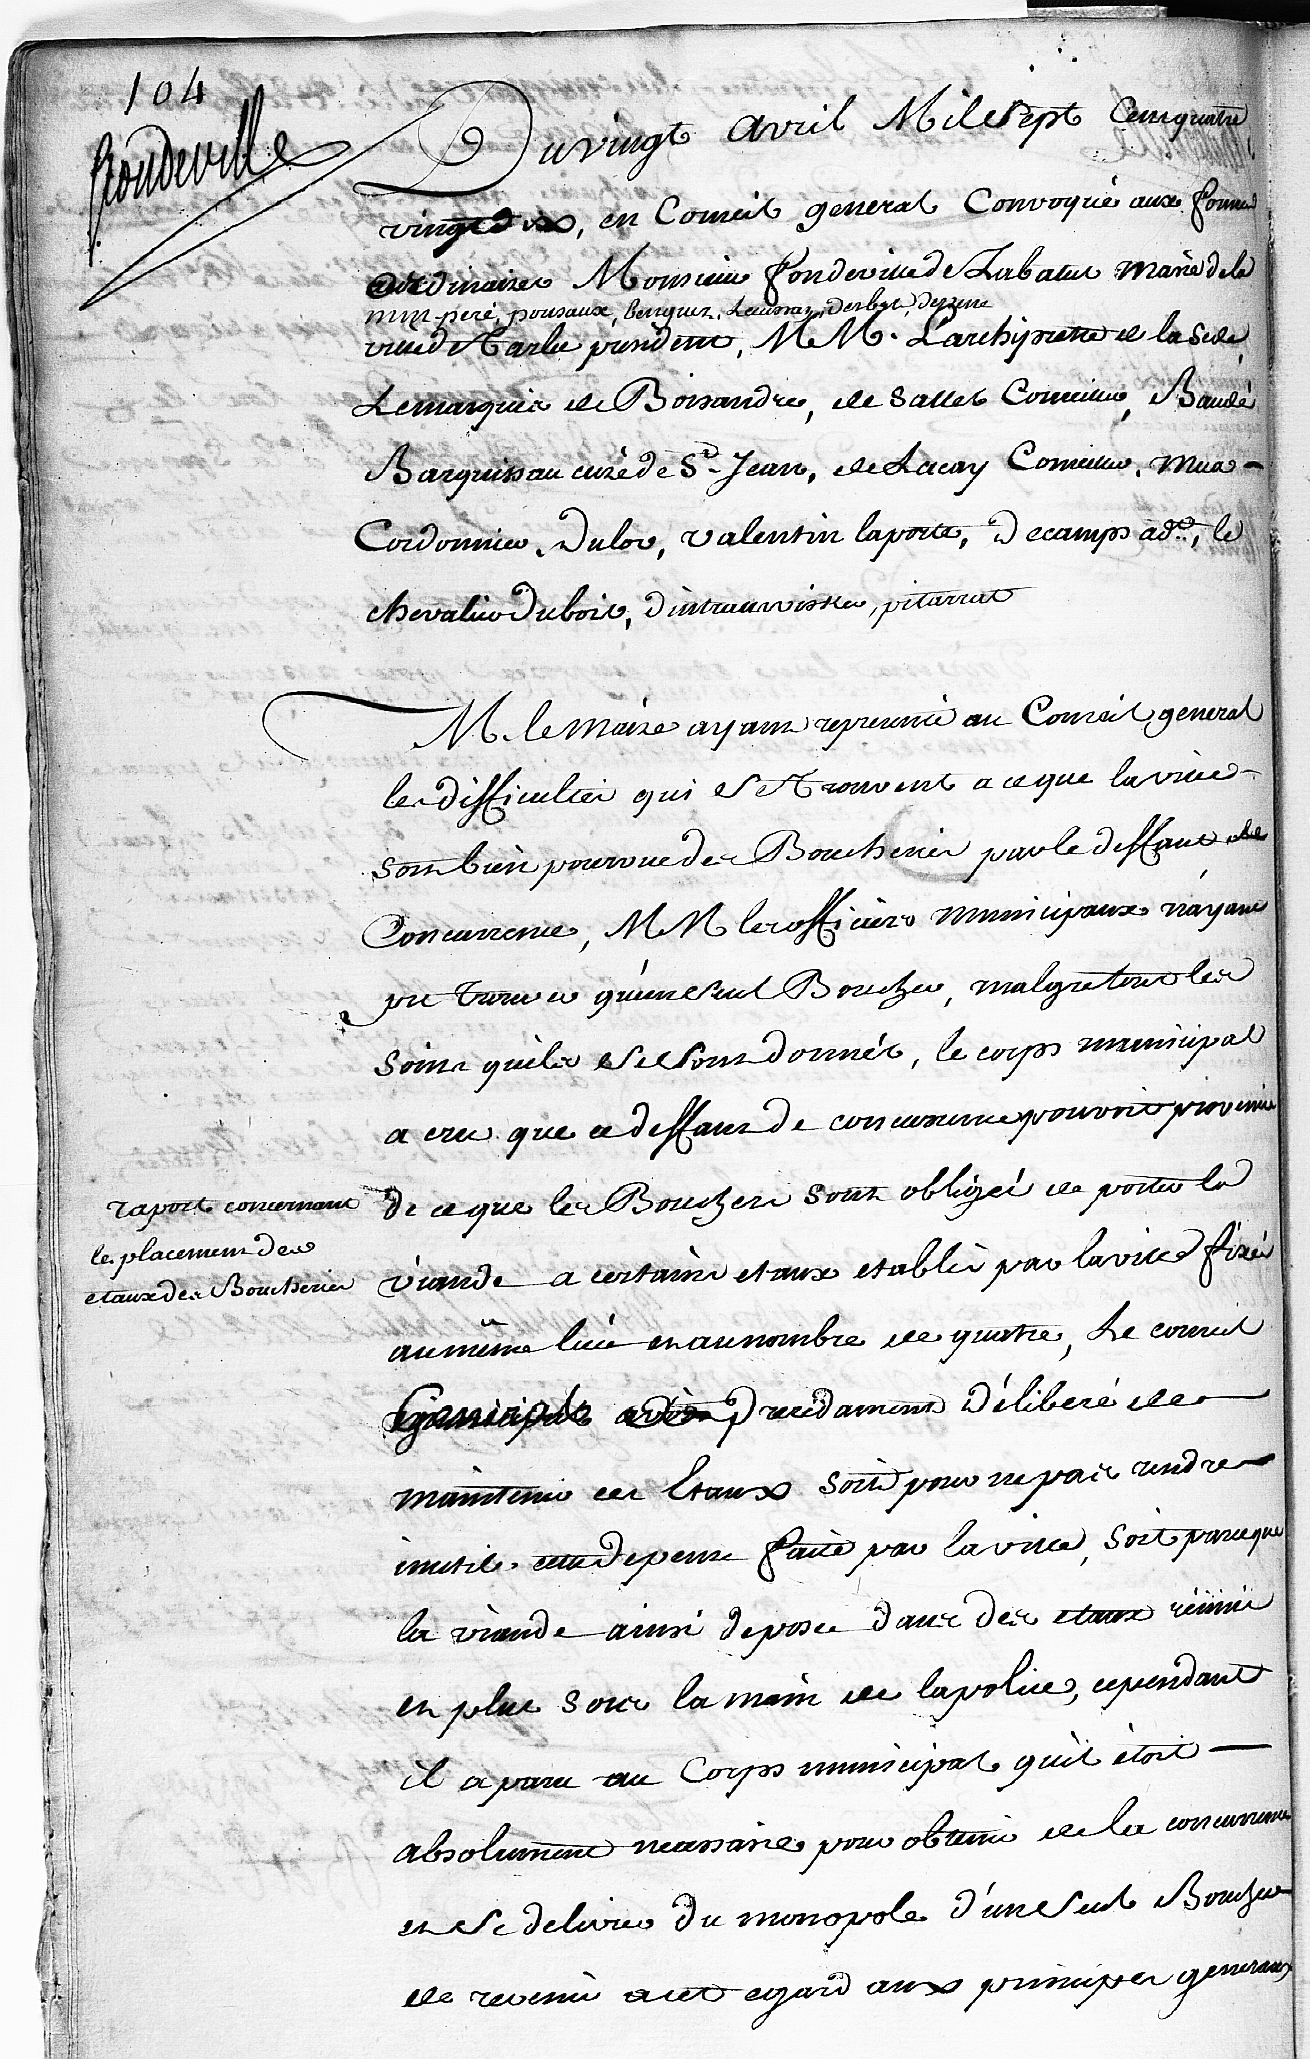 104
fondeville
Du vingt avril Mil sept Cent quatre
vingt dix, en Conseil general Convoqué aux formes
ordinaires Monsieur fondeville de Labatut maire de la
mm. peré, pousaux, Lenguer, Laussay, desbets, dezerre
ville de Tarbe president, MM. L'archiprettre de la Sede
Lemarquis de Boisandre, de Sallet Conseiller, Baudé
Barquissau curé de St Jean, de Lacay Conseiller, mua-
Cordonnier, Dulor, valentin laporte, Decamps ad.., le
chevalier Dubois, pitarrat
M. le Maire ayant representé au Conseil general
les difficultés qui se trouvent a ce que la ville
soit bien pourvue des Boucheries par le deffaut de
Concurrence, MM les officiers municipaux n'ayant
pu trouver qu'un seul Boucher, malgré tous les
soins qu'ils se sont donnés, le corps municipal
a cru que ce deffaut de concurrence pouvoit provenir
de ce que les Bouchers sont obligés de porter la
raport concernant
le placement des
etaux des Boucheries
viande a certains etaux etablis par la ville fixés
au même lieu et au nombre de quatre, Le conseil
general precedament déliberé de
maintenir ces Etaux soit pour ne pas rendre
inutile cette depense faite par la ville, soit parce que
la viande ainsi deposée dans des etaux réunis
est plus sous la main de la police, cependant
il a paru au Corps municipal qu'il étoit
absolument necessaire pour obtenir de la concurrence
et se delivrer du monopole d'un seul Boucher
de revenir a cet egard aux principes generaux